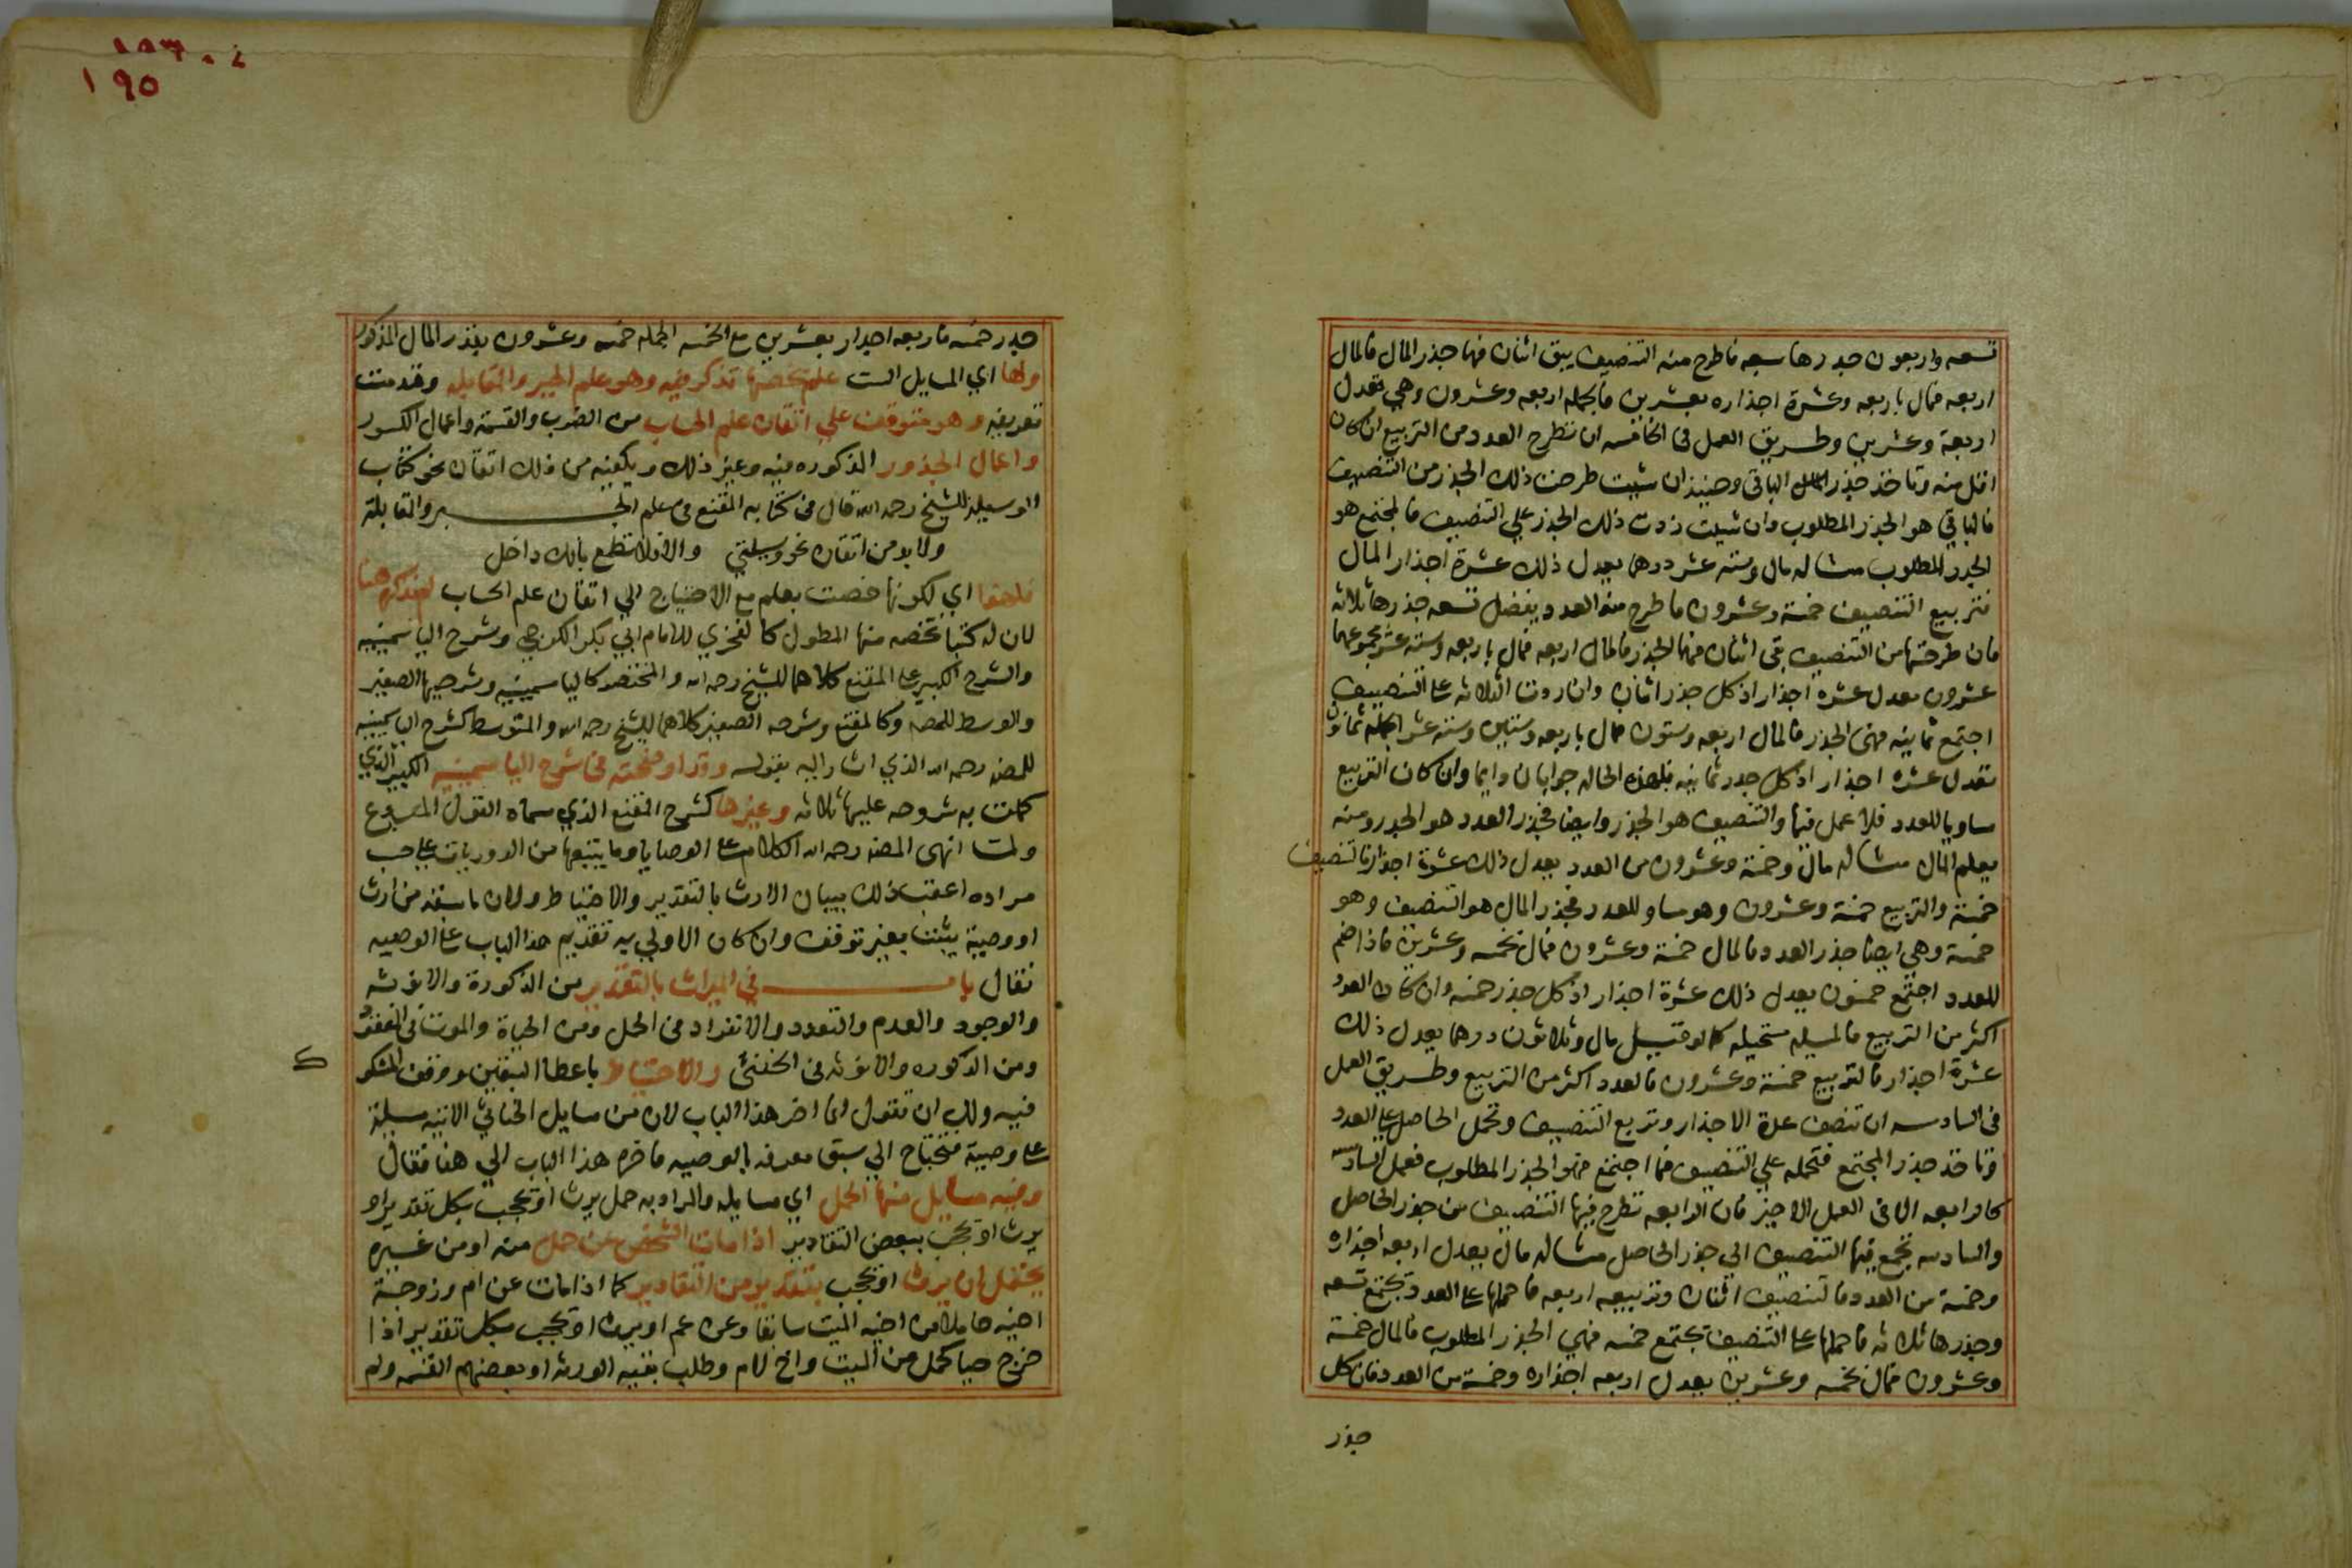 تسعه واربعون جدرها سبعه فاطرح منه التنصيف يبق اثنان فهما جذر المال فالمال
اربعه فمال باربعه وعشرة اجذاره بعشرين فالجمله اربعه وعشرون وهي تعدل
اربعة وعشرين وطريق العمل في الخامسه ان تطرح العدد من التربيع ان كان
اقل منه وتاخذ جذر الباقي وحينيذ ان شيت طرحت ذلك الجذر من التنصيف
فالباقي هو الجذر المطلوب وان شيت زدت ذلك الجذر علي التنصيف فالمجتمع هو
الجدر المطلوب مثاله مال وسته عشر درهما يعدل ذلك عشرة اجذار المال
فتربيع التنصيف خمسة وعشرون فاطرح منه العدد يفضل تسعه جذرها ثلاثه
فان طرحتها من التنصيف بقي اثنان فهما الجذر فالمال اربعه فمال باربعه وسته عشر مجموعهما
عشرون تعدل عشره اجذار اذ كل جذر اثنان وان زدت الثلاثه علي التنصيف
اجتمع ثمانيه فهي الجذر فالمال اربعه وستون فمال باربعه وستين وسته عشر الجمله ثمانون
تعدل عشره اجذار اذ كل جدر ثمانيه فلهذه الحاله جوابان دايما وان كان التربيع
مساويا للعدد فلا عمل فيها والتنصيف هو الجذر وايضا فجذر العدد هو الجدر ومنه
يعلم المال مثاله مال وخمسة وعشرون من العدد يعدل ذلك عشرة اجذار فالتنصيف
خمسة والتربيع خمسة وعشرون وهو مساو للعدد فجذر المال هو التنصيف وهو
خمسة وهي ايضا جذر العدد فالمال خمسة وعشرون فمال بخمسه وعشرين فاذا ضم
للعدد اجتمع خمسون يعدل ذلك عشرة اجذار اذ كل جذر خمسه وان كان العدد
اكثر من التربيع فالمسيله مستحيله كما لو قيل مال وثلاثون درهما يعدل ذلك
عشرة اجذار فالتربيع خمسة وعشرون فالعدد اكثر من التربيع وطريق العمل
في السادسه ان تنصف عدة الاجذار وتربع التنصيف وتحمل الحاصل علي العدد
وتاخذ جذر المجتمع فتحمله علي التنصيف فما اجتمع فهو الجذر المطلوب فعمل السادسه
كالرابعه الا في العمل الاخير فان الرابعه تطرح فيها التنصيف من جذر الحاصل
والسادسه تجمع فيها التنصيف الي جذر الحاصل مثاله مال يعدل اربعه اجذاره
وخمسة من العدد فالتنصيف اثنان وتربيعه اربعه فاحملها علي العدد يجتمع تسعه
وجذرها ثلاثه فاحملها علي التنصيف يجتمع خمسه فهي الجذر المطلوب فالمال خمسة
وعشرون فمال بخمسه وعشرين يعدل اربعه اجذاره وخمسة من العدد فان كل
جذر
١٩٥
جدر خمسه فاربعه اجدار بعشرين مع الخمسه الجمله خمسه وعشرون بقدر المال المذكور
ولها اي المسايل الست علم يخصها تذكر فيه وهو علم الجبر والمقابله وقدمت
تعريفه وهو متوقف علي اتقان علم الحساب من الضرب والقسمة واعمال الكسور
واعمال الجذور المذكوره فيه وغير ذلك ويكفيه من ذلك اتقان نحو كتاب
الوسيله للشيخ رحمه الله قال في كتابه المقنع في علم الجبر والمقابلة
ولا بد من اتقان نحو وسيلتي والا فلا تطمع بانك داخل
فلهذا اي لكونها خصت بعلم مع الاحتياج الي اتقان علم الحساب لم نذكرها هنا
لان له كتبا تخصه منها المطول كالفخري للامام ابي بكر الكرجي وشرح الياسمينيه
والشرح الكبير علي المقنع كلاهما للشيخ رحمه الله والمختصر كالياسمينيه وشرحيها الصغير
والوسط للمصنف وكالمقنع وشرحه الصغير كلاهما للشيخ رحمه الله والمتوسط كشرح الياسمينيه
للمصنف رحمه الله الذي اشار اليه بقوله وقد اوضحته في شرح الياسمينيه الكبير الذي
كملت به شروحه عليها ثلاثه وغيرها كشرح المقنع الذي سماه القول المبدع
ولما انهي المصنف رحمه الله الكلام علي الوصايا وما يتبعها من الدوريات علي حسب
مراده اعقب ذلك ببيان الارث بالتقدير والاحتياط ولان ما سبقه من ارث
او وصية يثبت بغير توقف وان كان الاولي به تقديم هذا الباب علي الوصيه
فقال باب في الميراث بالتقدير من الذكورة والانوثه
والوجود والعدم والتعدد والانفراد في الحمل ومن الحياة والموت في المفقود
ومن الذكوره والانوثه في الخنثي والاحتياط باعطا اليقين ووقف المشكوك
فيه ولك ان تقول انما اخر هذا الباب لان من مسايل الخناثي الاتيه مسيلة
علي وصية فتحتاج الي سبق معرفه بالوصيه فاخر هذا الباب الي هنا فقال
وفيه مسايل منها الحمل اي مسايله والمراد به حمل يرث او يحجب بكل تقدير او
يرث او يحجب ببعض التقادير اذا مات الشخص عن حمل منه او من غيره
يحتمل ان يرث او يحجب بتقدير من التقادير كما اذا مات عن ام وزوجة
اخيه حاملا من اخيه الميت سابقا وعن عم او يرث او يحجب بكل تقدير اذا
خرج حيا كحمل من الميت واخ لام وطلب بقيه الورثه او بعضهم القسمه ولم